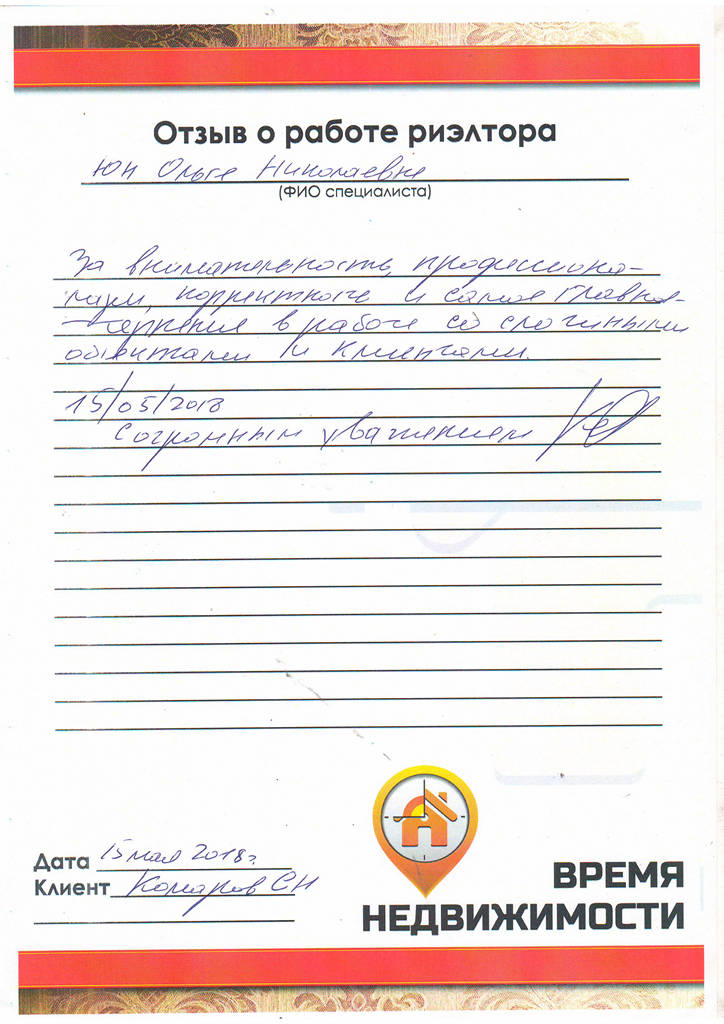 Отзыв о работе риэлтора
Юн Ольге Николаевне
(ФИО специалиста)
За внимательность, профессиона-
лизм, корректность и самое главное-
-терпение в работе со сложными
объектами и клиентами.
15/05/2018
С огромным уважением
Дата 15 мая 2018г.
Клиент Комаров СН
ВРЕМЯ
НЕДВИЖИМОСТИ